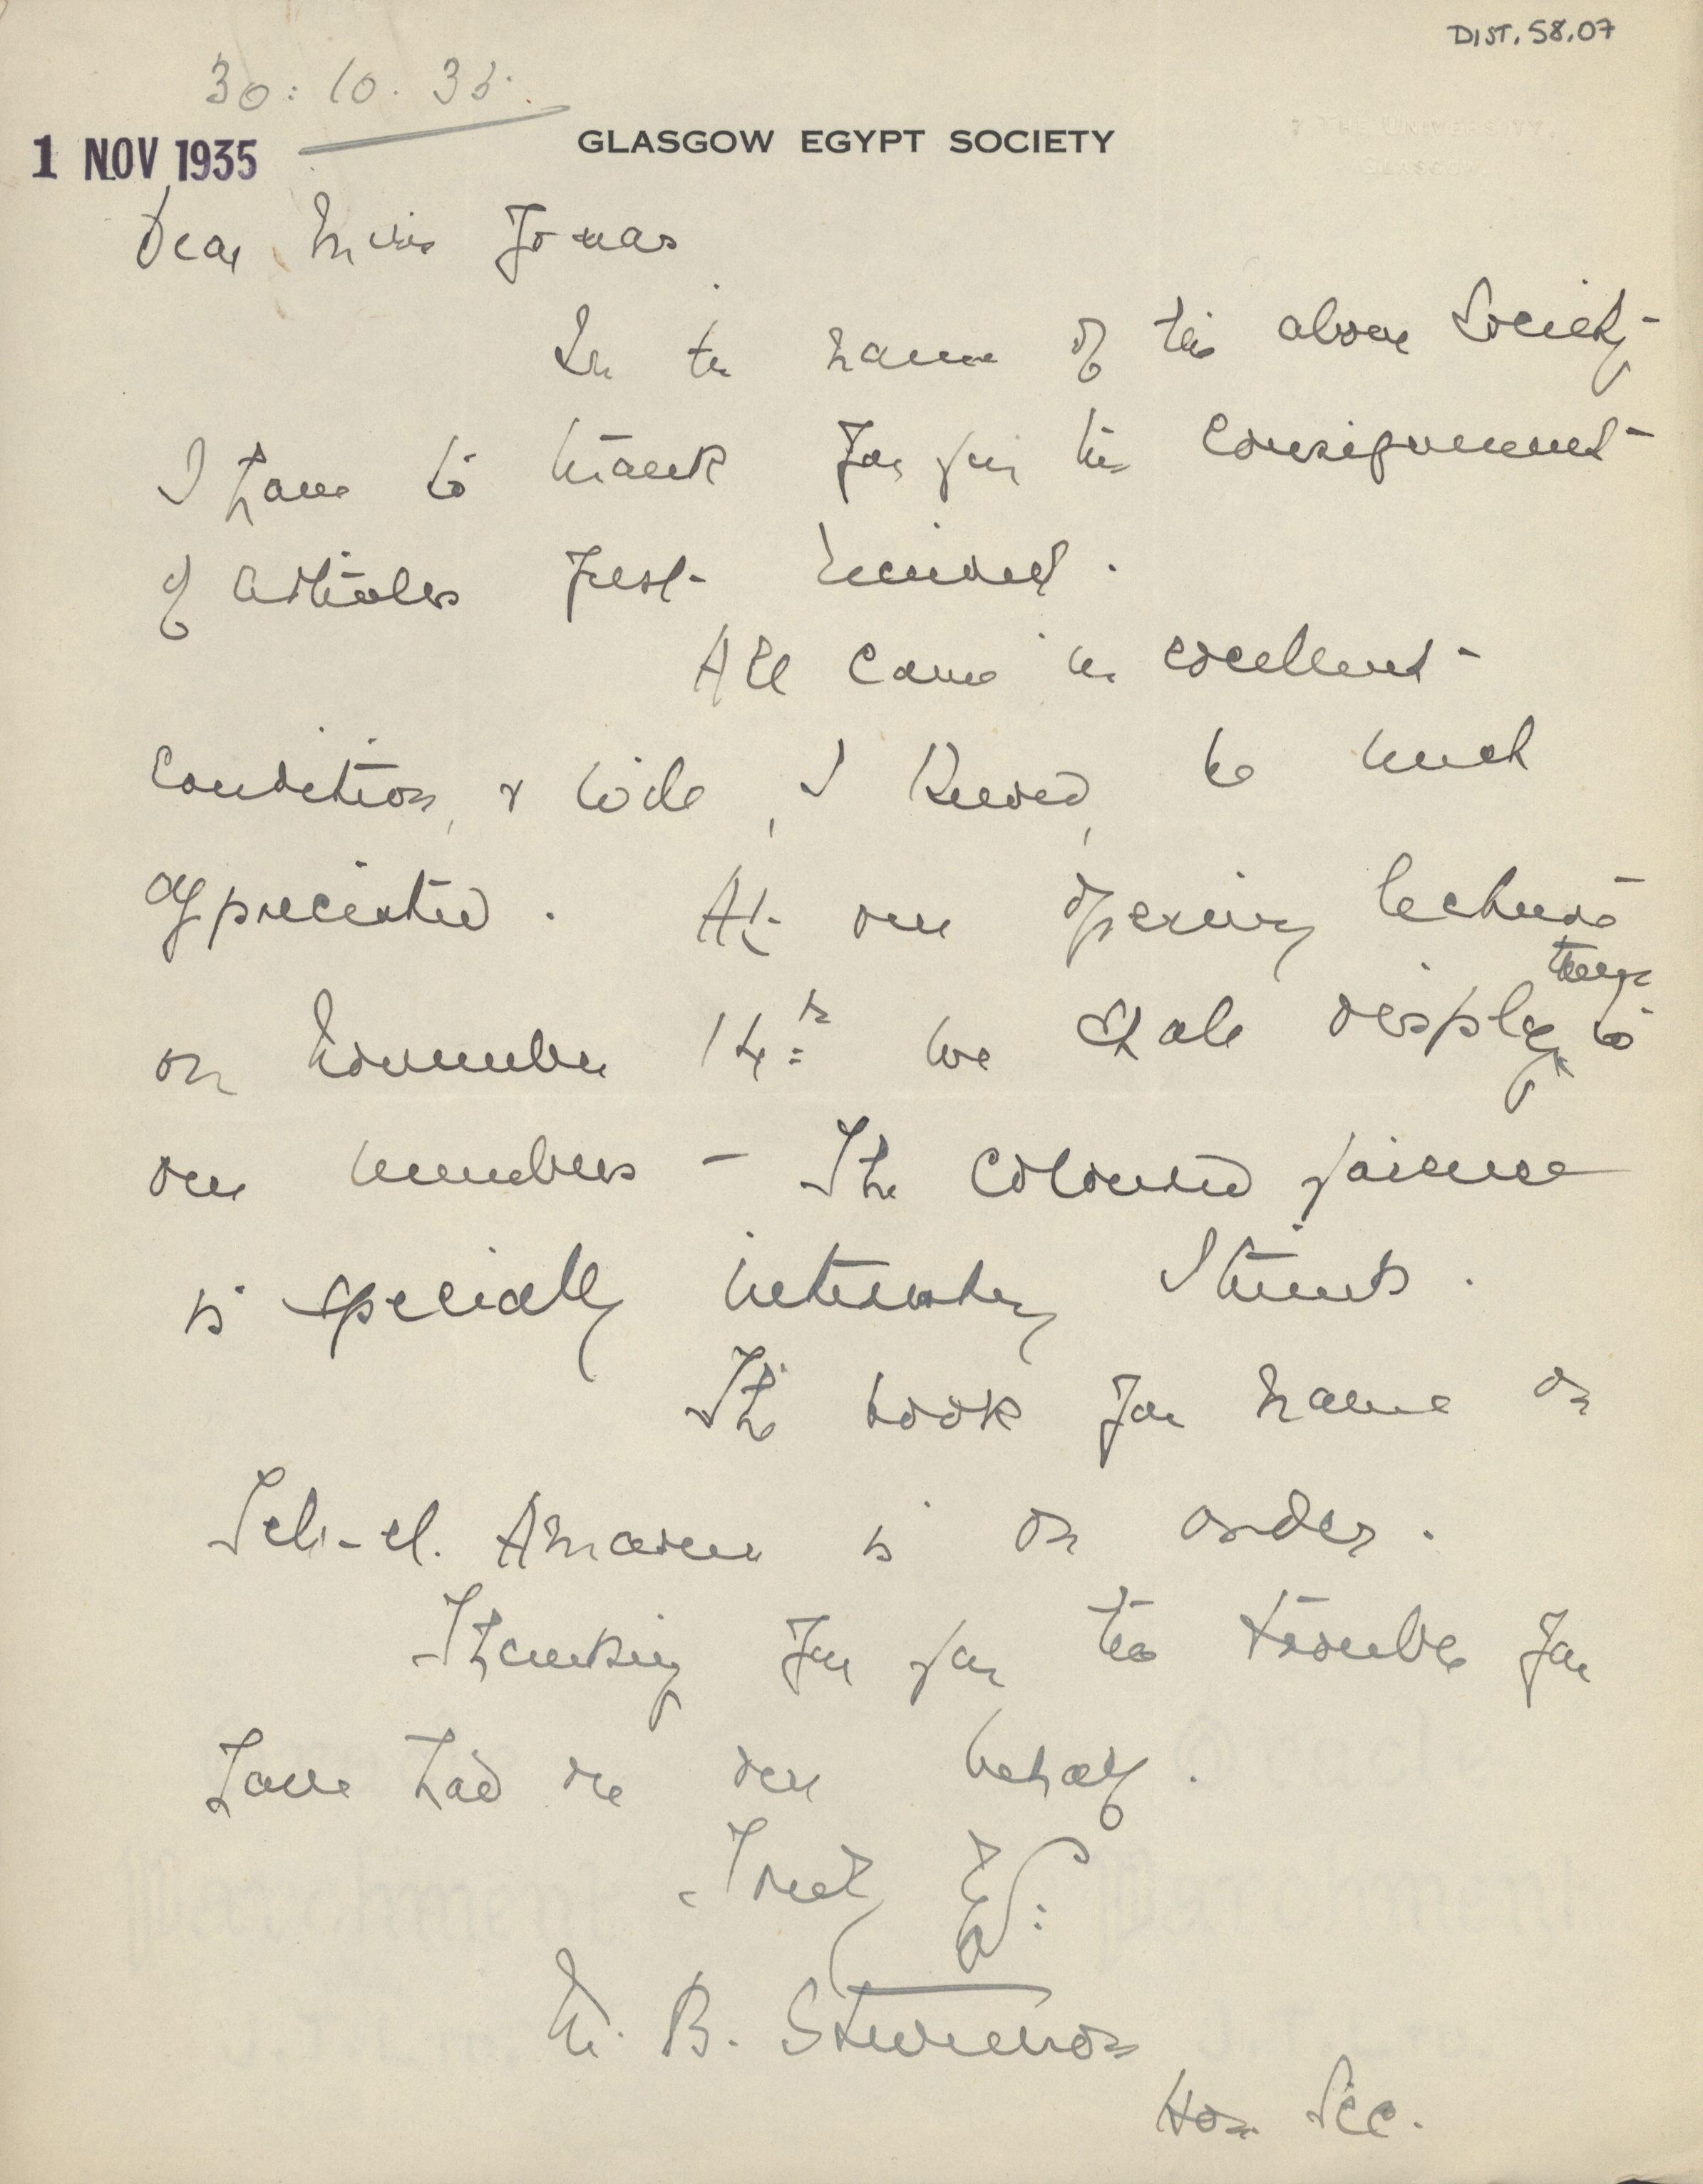 DIST. 58.07
30:10.35.
1 NOV 1935
GLASGOW EGYPT SOCIETY
7 THE UNIVERSITY
GLASGOW
Dear Miss Jonas
In the name of the above Society
I have to thank you for the consignment
of articles just received.
All came in excellent
condition, & will, I know, be much
appreciated. At our opening lecture
on November 14th we shall display these to
our members – The coloured faience
is specially interesting I think.
The book you name on
Tel-el-Amarna is on order.
Thanking you for the trouble you
have had on our behalf.
Truly Yrs:
B. Stevenson
Hon. Sec.